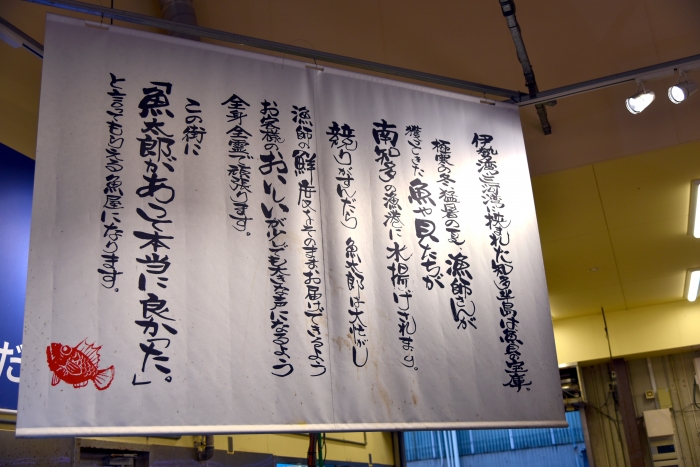 伊勢湾と三河湾に挟まれた知多半島は魚貝の宝庫、
極寒の冬、猛暑の夏、漁師さんが
獲ってきた魚や貝たちが
南知多の漁港に水揚げされます。
競りがすんだら 魚太郎は大忙し
漁師の鮮度をそのまま、お届けできるよう
お客様のおいしいが少しでも大きな声になるよう
全身全霊で頑張ります。
この街に
「魚太郎があって本当に良かった。」
と言ってもらえる魚屋になります。
だ